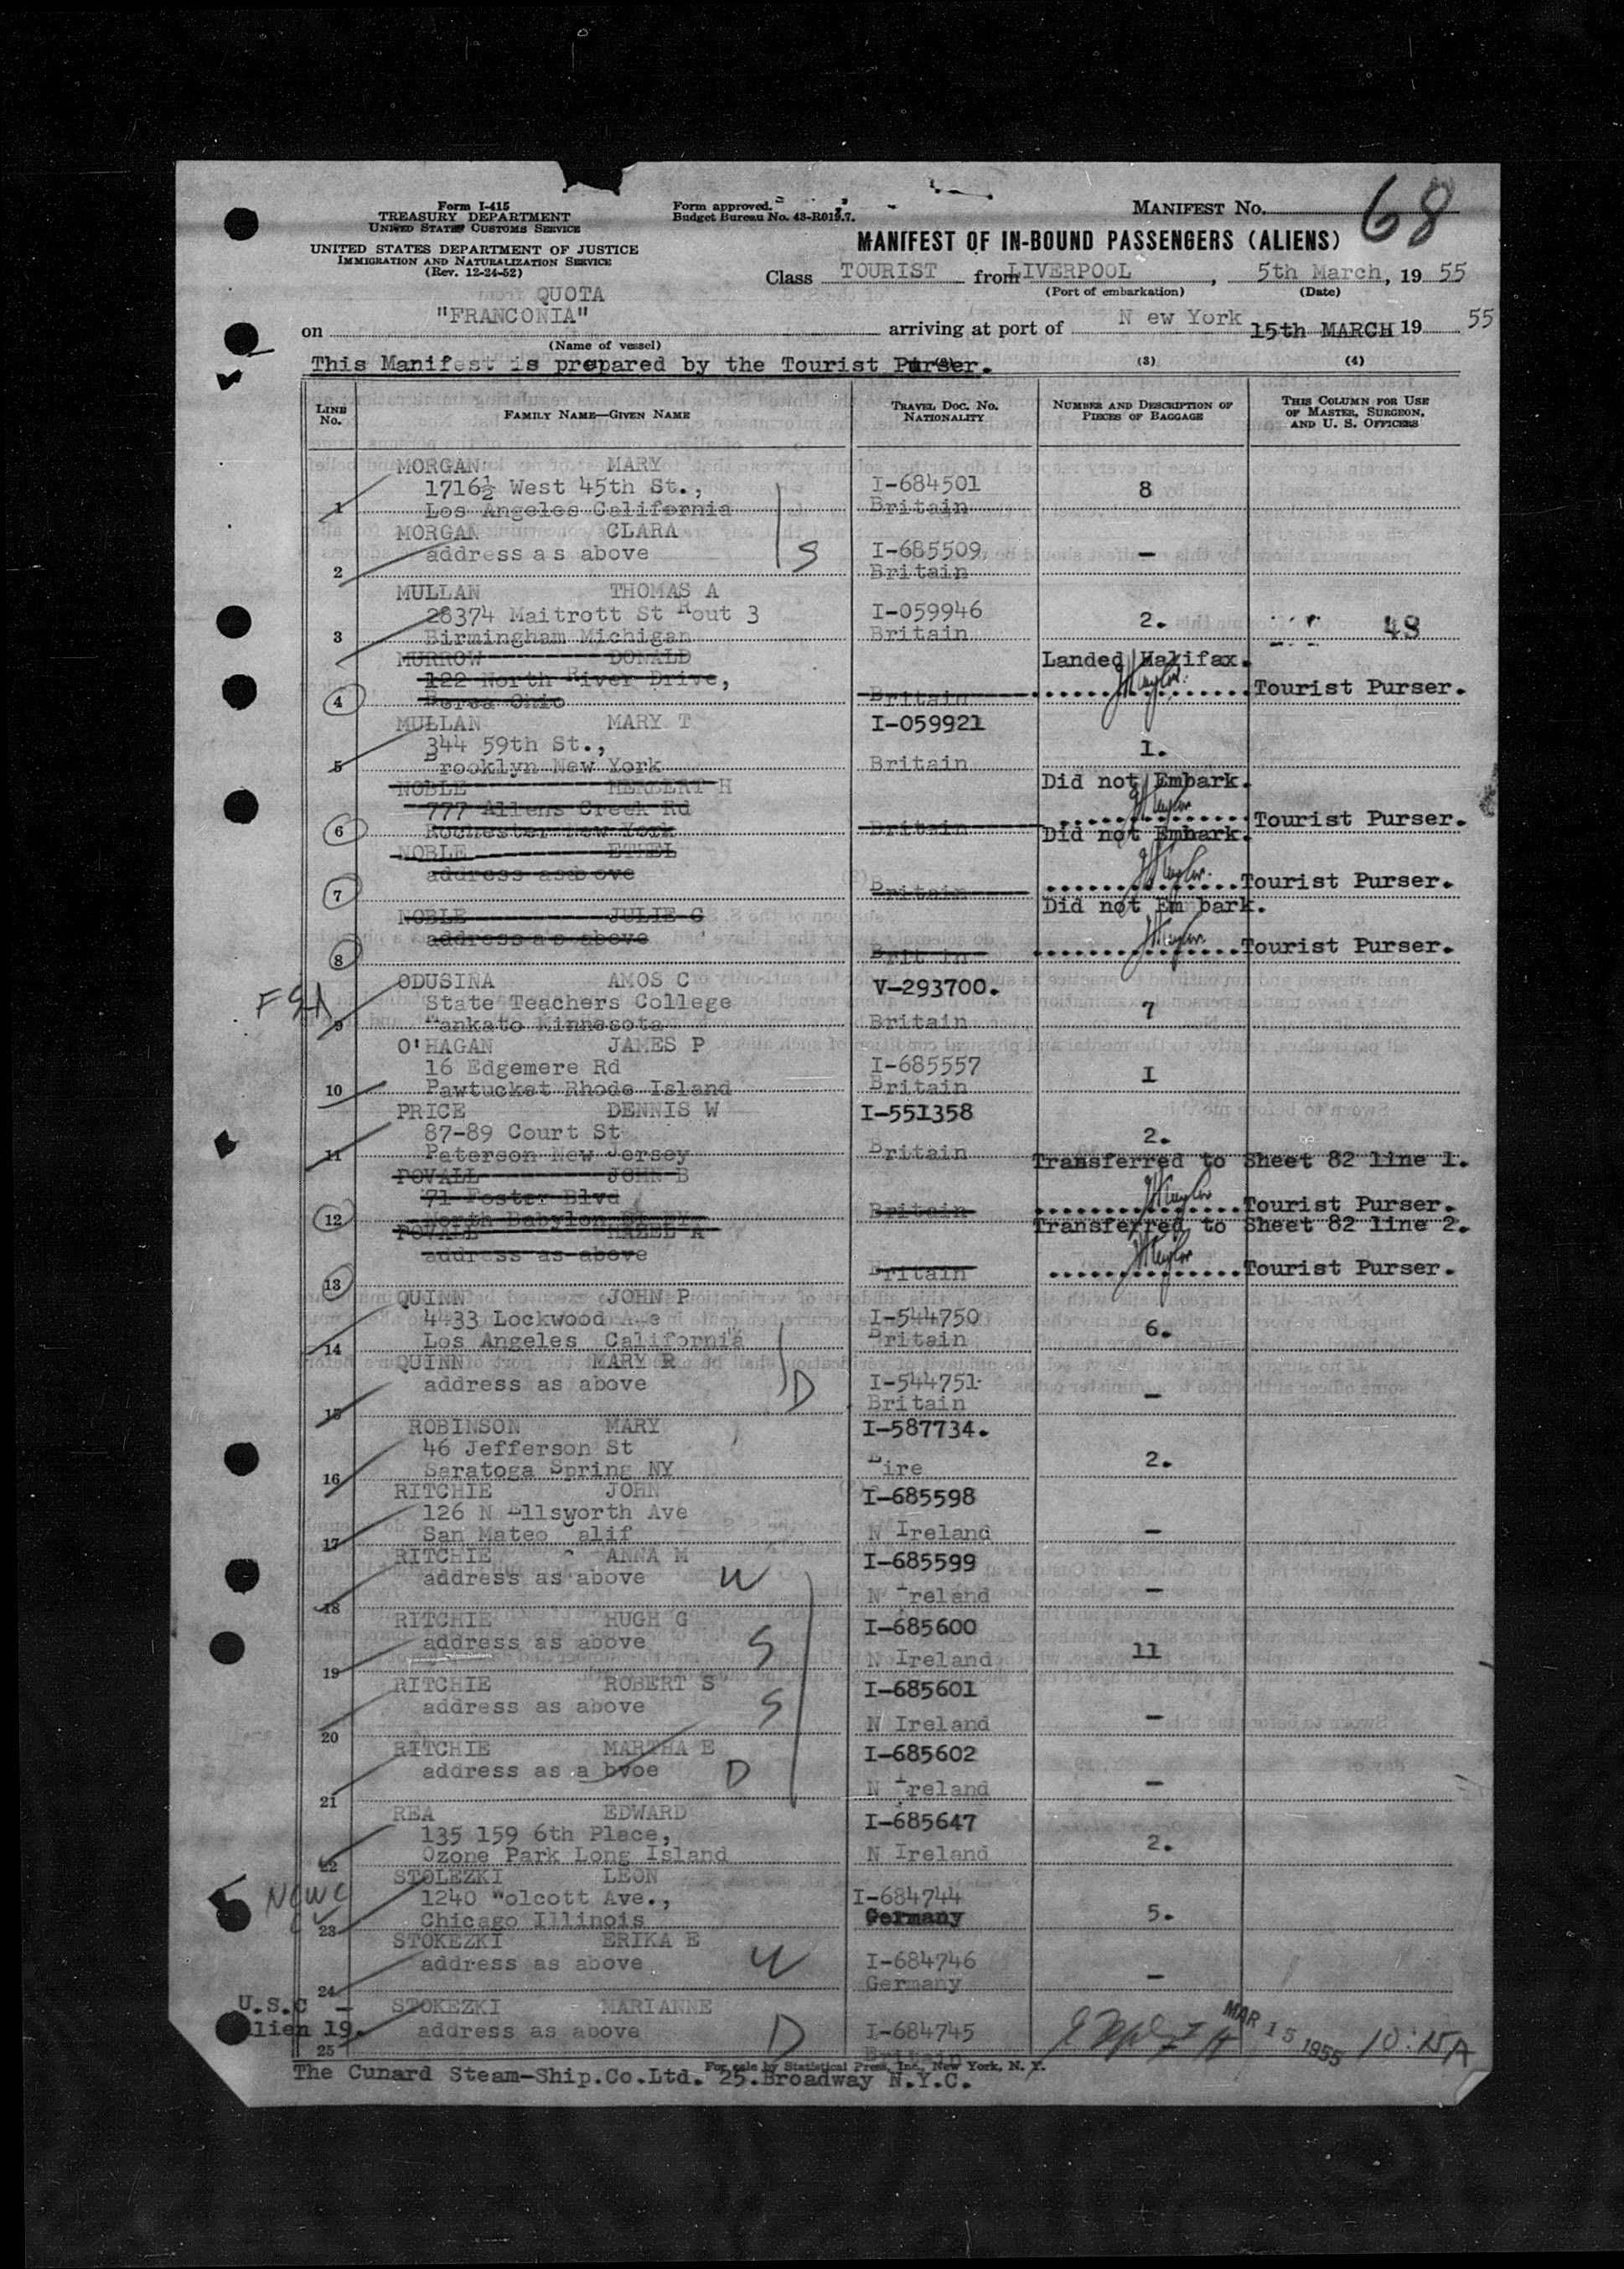 Form I-415
TREASURY DEPARTMENT
UNITED STATES CUSTOMS SERVICE
UNITED STATES DEPARTMENT OF JUSTICE
IMMIGRATION AND NATURALIZATION SERVICE
(Rev. 12-24-52)
Form approved.
Budget Bureau No. 43-R019.7.
MANIFEST No. 68
MANIFEST OF IN-BOUND PASSENGERS (ALIENS)
Class TOURIST from LIVERPOOL, 5th March, 19 55
(Port of embarkation) (Date)
QUOTA
on "FRANCONIA" arriving at port of N ew York 15th MARCH 19 55
(Name of vessel)
This Manifest is prepared by the Tourist Purser. (3) (4)
LINE No. FAMILY NAME—GIVEN NAME TRAVEL DOC. NO. NATIONALITY NUMBER AND DESCRIPTION OF PIECES OF BAGGAGE THIS COLUMN FOR USE OF MASTER, SURGEON, AND U. S. OFFICERS
MORGAN MARY
1716½ West 45th St., I-684501 8
1 Los Angeles California Britain
MORGAN CLARA
address as above S I-685509 -
2 Britain
MULLAN THOMAS A
28374 Maitrott St Rout 3 I-059946 2. 48
3 Birmingham Michigan Britain
MURROW DONALD Landed Halifax.
122 North River Drive,
4 Berea Ohio Britain Tourist Purser.
MULLAN MARY T I-059921
344 59th St., 1.
5 Brooklyn New York Britain
NOBLE HERBERT H Did not Embark.
777 Allens Creek Rd
6 Rochester New York Britain Tourist Purser.
NOBLE ETHEL Did not Embark.
address as above
7 Britain Tourist Purser.
NOBLE JULIE G Did not Em bark.
address a s above
8 Britain Tourist Purser.
ODUSINA AMOS C V-293700.
State Teachers College 7
9 Mankato Minnesota Britain
O'HAGAN JAMES P
16 Edgemere Rd I-685557 I
10 Pawtucket Rhode Island Britain
PRICE DENNIS W I-551358
87-89 Court St 2.
11 Paterson New Jersey Britain
POVALL JOHN B Transferred to Sheet 82 line 1.
71 Foster Blvd
12 North Babylon Britain Tourist Purser.
POVALL HAZEL A Transferred to Sheet 82 line 2.
address as above
13 Britain Tourist Purser.
QUINN JOHN P
4433 Lockwood Ave I-544750 6.
14 Los Angeles California Britain
QUINN MARY R
address as above D I-544751 -
15 Britain
ROBINSON MARY I-587734.
46 Jefferson St 2.
16 Saratoga Spring NY Eire
RITCHIE JOHN I-685598
126 N Ellsworth Ave
17 San Mateo Calif N Ireland -
RITCHIE ANNA M I-685599
address as above W
18 N Ireland -
RITCHIE HUGH G I-685600
address as above S 11
19 N Ireland
RITCHIE ROBERT S I-685601
address as above S
20 N Ireland -
RITCHIE MARTHA E I-685602
address as a bvoe D
21 N Ireland -
REA EDWARD I-685647
135 159 6th Place, 2.
22 Ozone Park Long Island N Ireland
STOLEZKI LEON
NCWC 1240 Wolcott Ave., I-684744
23 Chicago Illinois Germany 5.
STOKEZKI ERIKA E
address as above W I-684746
24 Germany -
U.S.C - STOKEZKI MARIANNE
Alien 19. address as above D I-684745 MAR 15 1955 10:15A
25 Britain
For sale by Statistical Press, Inc., New York, N. Y.
The Cunard Steam-Ship.Co.Ltd. 25.Broadway N.Y.C.